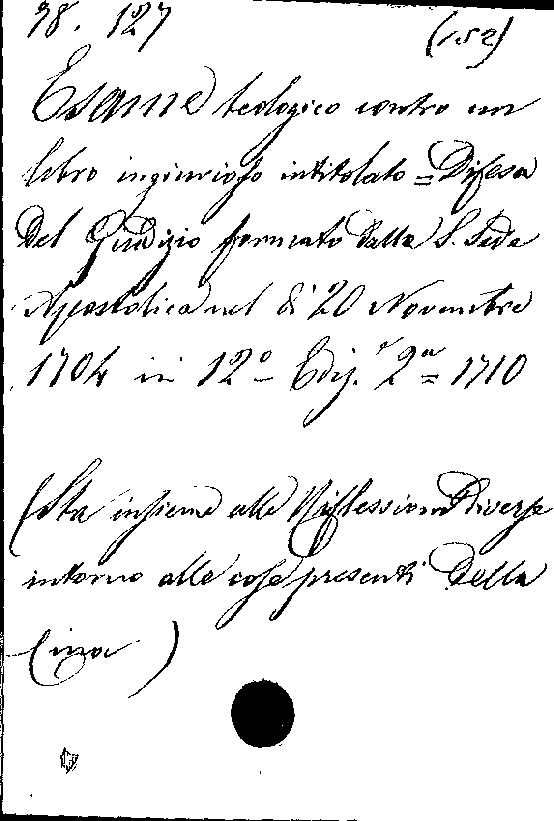 38. 127 (152)
Esame teologico contro un
libro ingiurioso intitolato = Difesa
Del Giudizio formato dalla S. Sede
Apostolica nel dì 20 Novembre
1704 in 12° - Ediz.e 2a = 1710
(Sta insieme alle Riflessioni Diverse
intorno alle cose presenti Della
Cina)